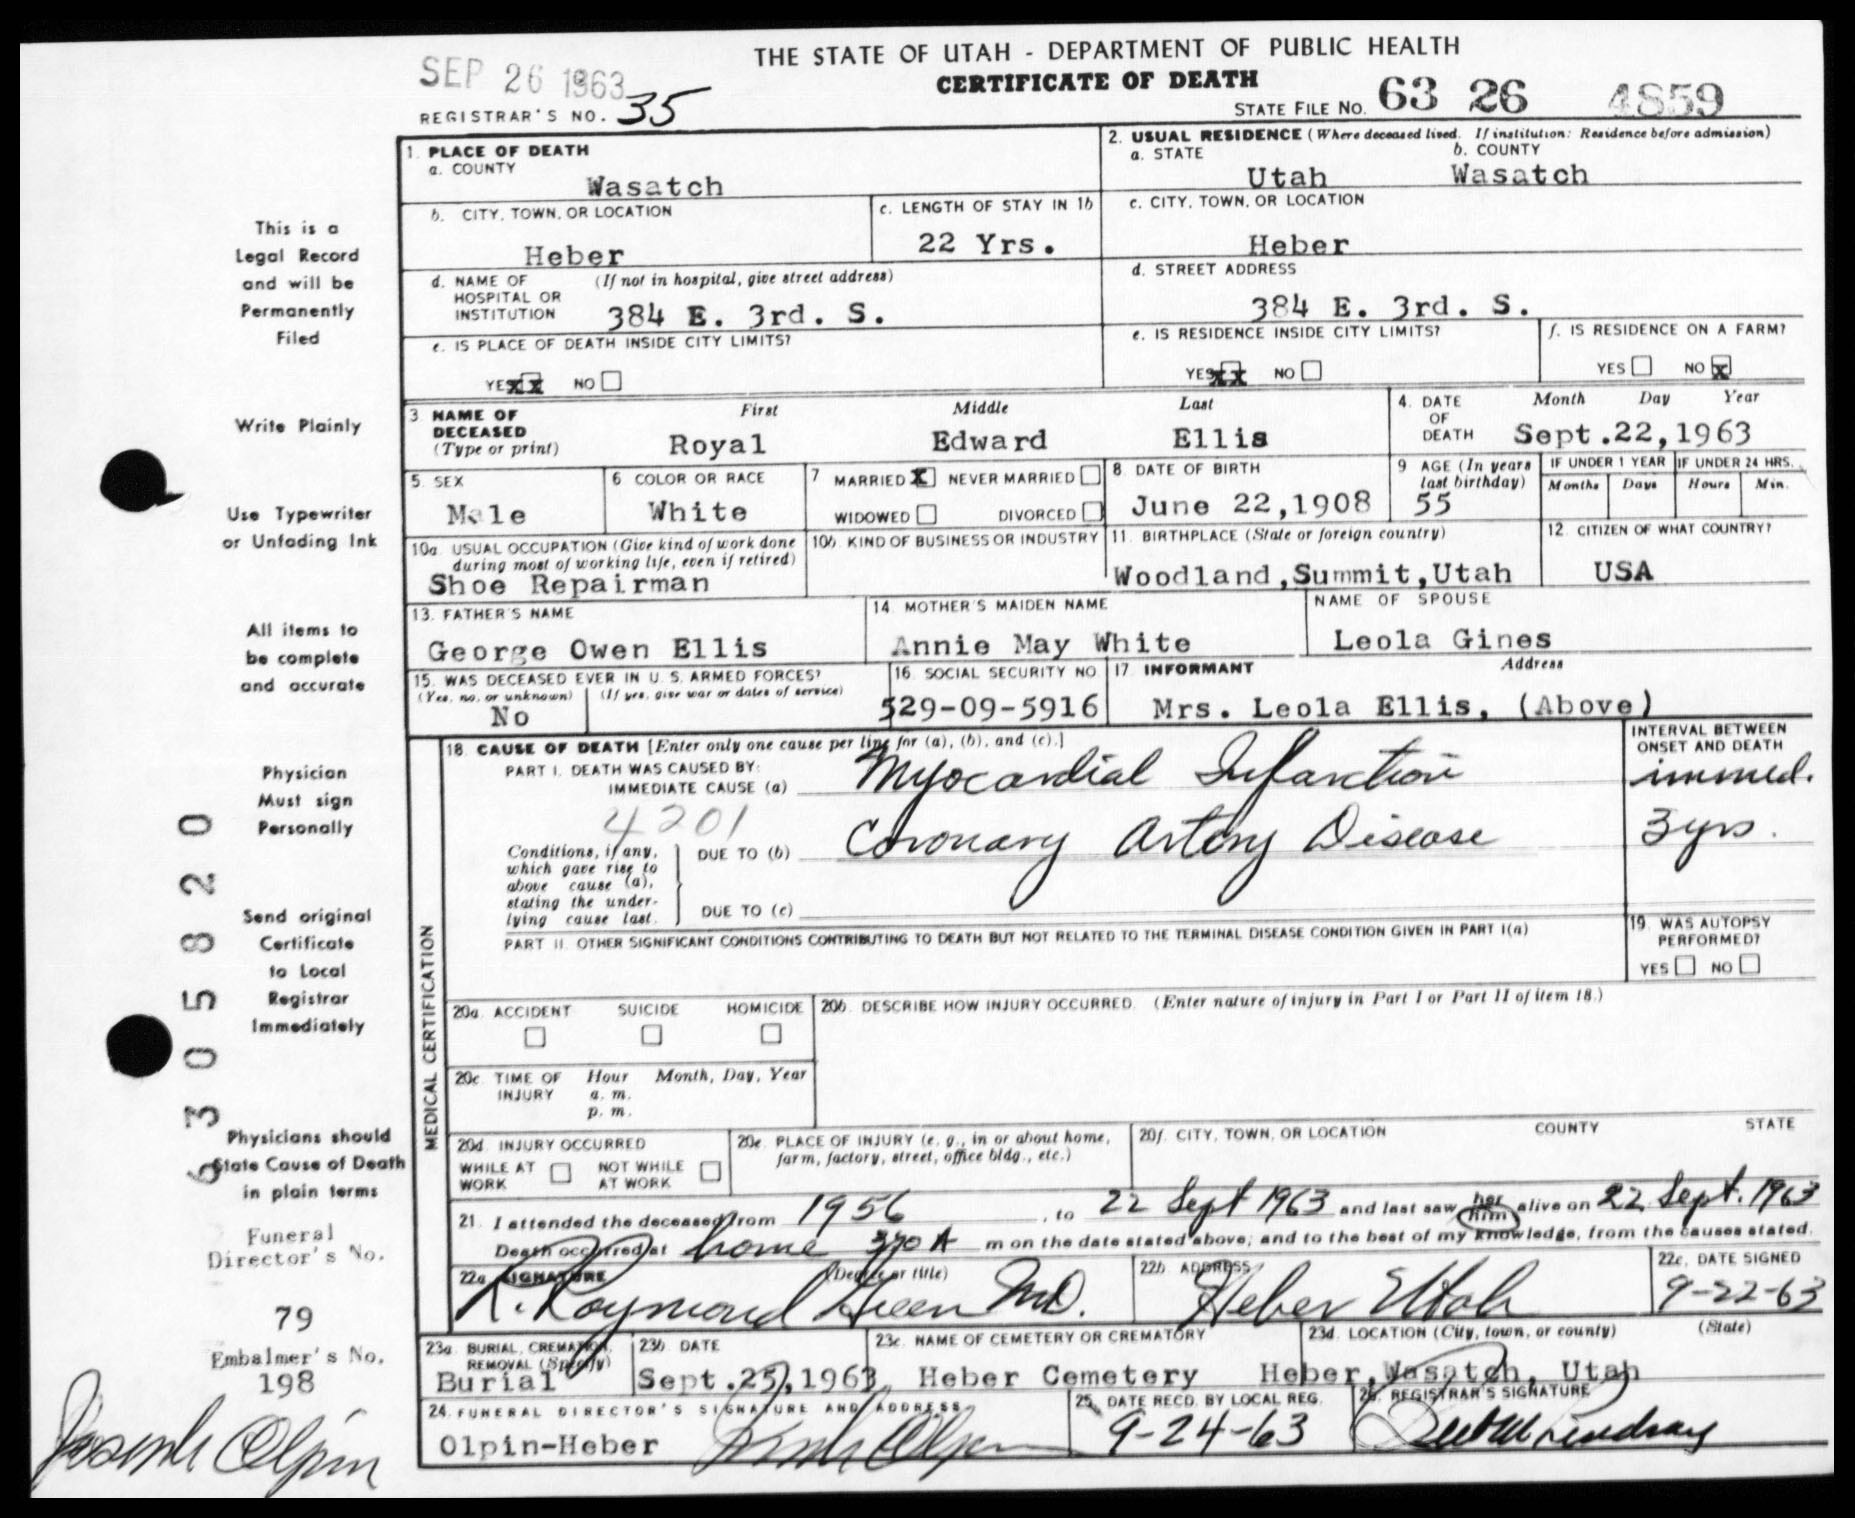 THE STATE OF UTAH - DEPARTMENT OF PUBLIC HEALTH
SEP 26 1963
CERTIFICATE OF DEATH
REGISTRAR'S NO. 35
STATE FILE NO. 63 26 4859
1. PLACE OF DEATH
a. COUNTY
Wasatch
2. USUAL RESIDENCE (Where deceased lived. If institution: Residence before admission)
a. STATE b. COUNTY
Utah Wasatch
b. CITY, TOWN, OR LOCATION
Heber
c. LENGTH OF STAY IN 1b
22 Yrs.
c. CITY, TOWN, OR LOCATION
Heber
d. NAME OF HOSPITAL OR INSTITUTION (If not in hospital, give street address)
384 E. 3rd. S.
d. STREET ADDRESS
384 E. 3rd. S.
e. IS PLACE OF DEATH INSIDE CITY LIMITS?
YES xx NO
e. IS RESIDENCE INSIDE CITY LIMITS?
YES xx NO
f. IS RESIDENCE ON A FARM?
YES NO x
3. NAME OF DECEASED (Type or print)
First Middle Last
Royal Edward Ellis
4. DATE OF DEATH
Month Day Year
Sept.22,1963
5. SEX
Male
6 COLOR OR RACE
White
7 MARRIED X NEVER MARRIED
WIDOWED DIVORCED
8 DATE OF BIRTH
June 22,1908
9 AGE (In years last birthday)
55
IF UNDER 1 YEAR IF UNDER 24 HRS.
Months Days Hours Min.
10a. USUAL OCCUPATION (Give kind of work done during most of working life, even if retired)
Shoe Repairman
10b. KIND OF BUSINESS OR INDUSTRY
11. BIRTHPLACE (State or foreign country)
Woodland,Summit,Utah
12. CITIZEN OF WHAT COUNTRY?
USA
13. FATHER'S NAME
George Owen Ellis
14. MOTHER'S MAIDEN NAME
Annie May White
NAME OF SPOUSE
Leola Gines
15. WAS DECEASED EVER IN U. S. ARMED FORCES?
(Yes, no, or unknown) (If yes, give war or dates of service)
No
16. SOCIAL SECURITY NO.
529-09-5916
17. INFORMANT Address
Mrs. Leola Ellis, (Above)
MEDICAL CERTIFICATION
18. CAUSE OF DEATH [Enter only one cause per line for (a), (b), and (c).]
INTERVAL BETWEEN ONSET AND DEATH
PART I. DEATH WAS CAUSED BY:
IMMEDIATE CAUSE (a) Myocardial Infarction immed.
4201
Conditions, if any, which gave rise to above cause (a), stating the underlying cause last.
DUE TO (b) Coronary Artery Disease 3 yrs.
DUE TO (c)
PART II. OTHER SIGNIFICANT CONDITIONS CONTRIBUTING TO DEATH BUT NOT RELATED TO THE TERMINAL DISEASE CONDITION GIVEN IN PART I(a)
19. WAS AUTOPSY PERFORMED?
YES NO
20a. ACCIDENT SUICIDE HOMICIDE
20b. DESCRIBE HOW INJURY OCCURRED. (Enter nature of injury in Part I or Part II of item 18.)
20c. TIME OF INJURY Hour Month, Day, Year
a. m.
p. m.
20d. INJURY OCCURRED
WHILE AT WORK NOT WHILE AT WORK
20e. PLACE OF INJURY (e. g., in or about home, farm, factory, street, office bldg., etc.)
20f. CITY, TOWN, OR LOCATION COUNTY STATE
21. I attended the deceased from 1956, to 22 Sept 1963 and last saw her him alive on 22 Sept. 1963
Death occurred at home A m on the date stated above; and to the best of my knowledge, from the causes stated.
22a. SIGNATURE (Degree or title)
R. Raymond Green MD.
22b. ADDRESS
Heber Utah
22c. DATE SIGNED
9-22-63
23a. BURIAL, CREMATION, REMOVAL (Specify)
Burial
23b. DATE
Sept.25,1963
23c. NAME OF CEMETERY OR CREMATORY
Heber Cemetery
23d. LOCATION (City, town, or county) (State)
Heber,Wasatch, Utah
24. FUNERAL DIRECTOR'S SIGNATURE AND ADDRESS
Olpin-Heber Joseph Olpin
25. DATE RECD. BY LOCAL REG.
9-24-63
26. REGISTRAR'S SIGNATURE
Lindsay
This is a
Legal Record
and will be
Permanently
Filed
Write Plainly
Use Typewriter
or Unfading Ink
All items to
be complete
and accurate
Physician
Must sign
Personally
Send original
Certificate
to Local
Registrar
Immediately
Physicians should
State Cause of Death
in plain terms
Funeral
Director's No.
79
Embalmer's No.
198
Joseph Olpin
6305820